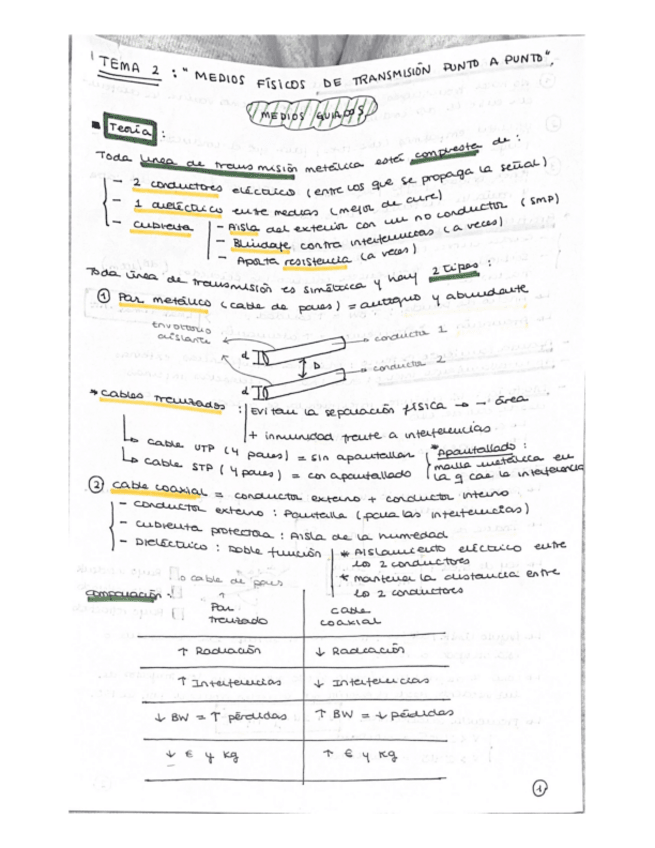 TEMA 2 : "MEDIOS FÍSICOS DE TRANSMISIÓN PUNTO A PUNTO".
MEDIOS GUIADOS
Teoría :
Toda línea de transmisión metálica está compuesta de :
- 2 conductores eléctrico (entre los que se propaga la señal)
- 1 dieléctrico entre medias (mejor de aire)
- cubierta
- Aisla del exterior con un no conductor (SMP)
- Blindaje contra interferencias (a veces)
- Aporta resistencia (a veces)
Toda línea de transmisión es simétrica y hay 2 tipos :
① Par metálico (cable de pares) = antiguo y abundante
envoltorio
aislante
conductor 1
d
D
conductor 2
d
* Cables trenzados :
Evitan la separación física → - área
+ inmunidad frente a interferencias
↳ cable UTP (4 pares) = sin apantallar
↳ cable STP (4 pares) = con apantallado
* Apantallado :
malla metálica en
la q cae la interferencia
② Cable coaxial = conductor externo + conductor interno
- conductor externo : Pantalla (para las interferencias)
- cubierta protectora : Aisla de la humedad
- Dieléctrico : Doble función
* Aislamiento eléctrico entre
los 2 conductores
* mantener la distancia entre
los 2 conductores
Comparación :
o cable de pares
↑
Par
Trenzado
cable
coaxial
↑ Radiación
↓ Radiación
↑ Interferencias
↓ Interferencias
↓ BW = ↑ pérdidas
↑ BW = ↓ pérdidas
↓ € y Kg
↑ € y Kg
1